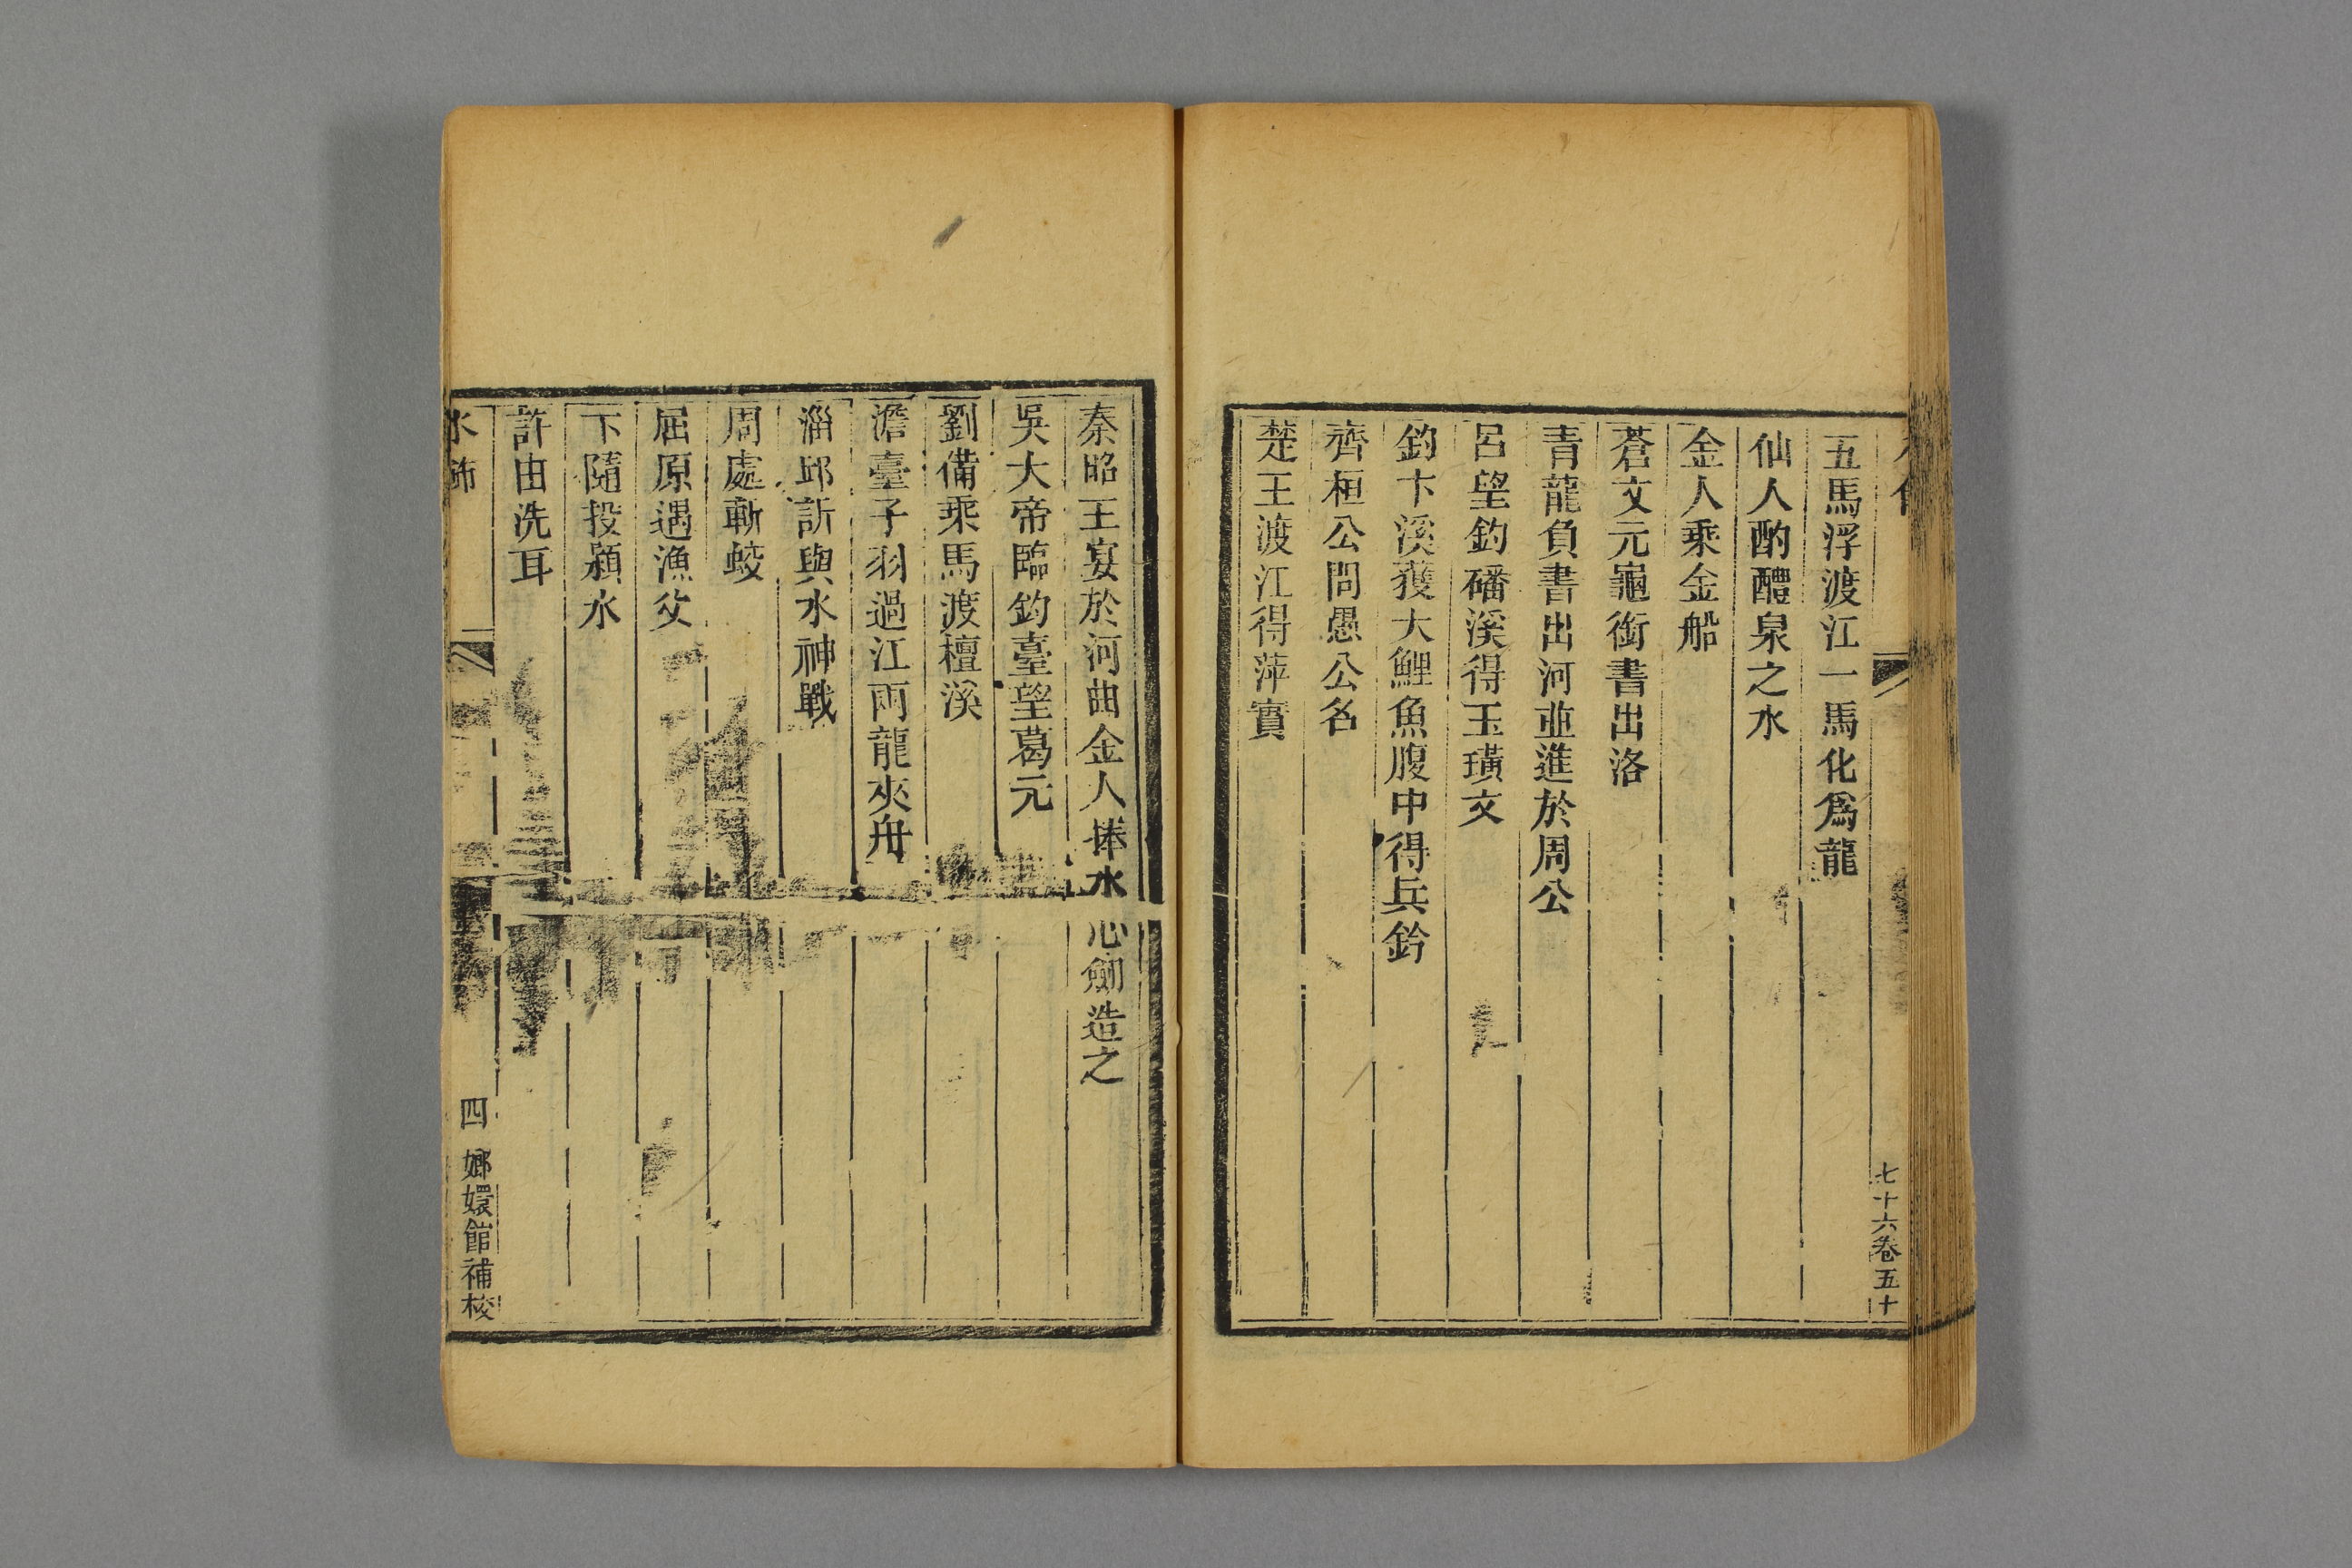 五馬浮渡江一馬化爲龍
仙人酌醴泉之水
金人乘金船
蒼文元龜銜書出洛
青龍負書出河並進於周公
呂望釣磻溪得玉璜文
釣卞溪獲大鯉魚腹中得兵鈐
齊桓公問愚公名
楚王渡江得萍實
七十六卷五十
秦昭王宴於河曲金人捧水心劒造之
吳大帝臨釣臺望葛元
劉備乘馬渡檀溪
澹臺子羽過江兩龍夾舟
淄邱訢與水神戰
周處斬蛟
屈原遇漁父
卞隨投潁水
許由洗耳
水飾
四
嫏嬛館補校